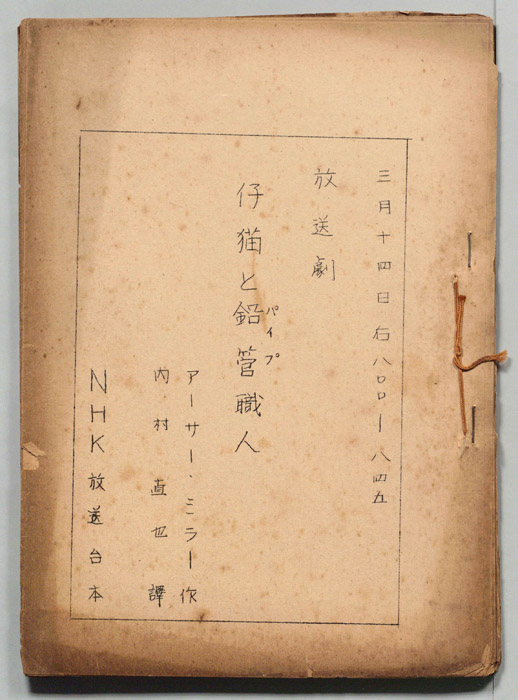 三月十四日 右 八〇〇ー八四五
放送劇
仔猫と鉛管職人
パイプ
アーサー・ミラー作
内村直也譯
NHK放送台本